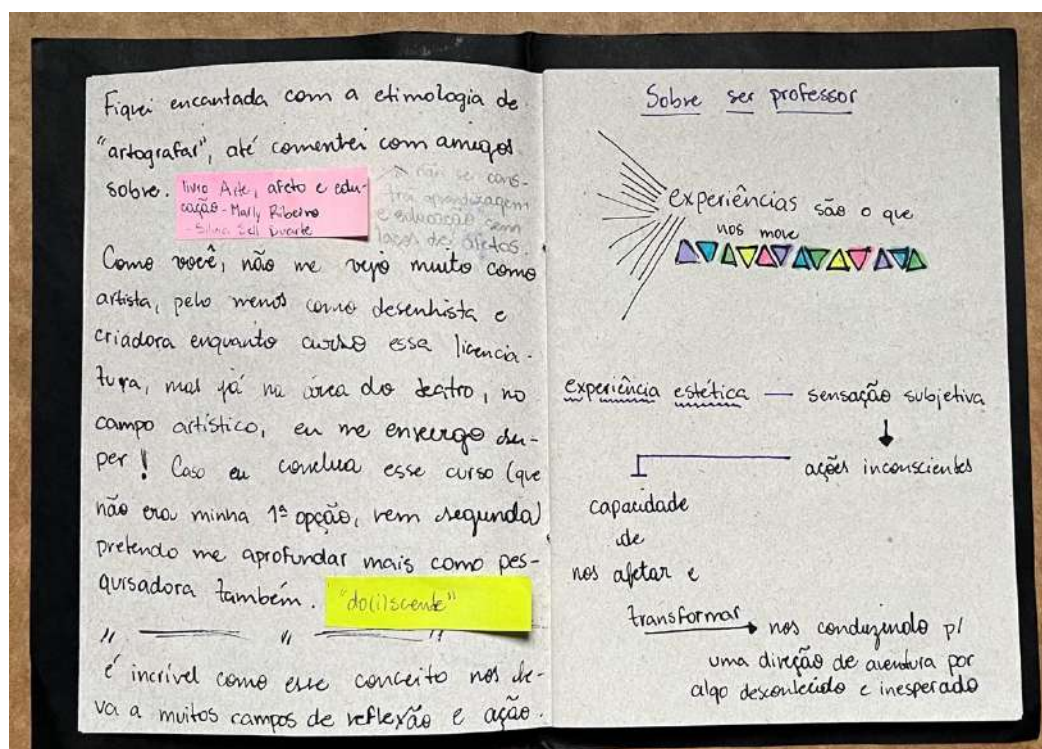 Fiquei encantada com a etimologia de
"artografar", até comentei com amigos
sobre.
livro Arte, afeto e edu-
cação - Marly Ribeiro
- Silvia Sell Duarte
não se cons-
trói aprendizagem
e educação sem
laços de afetos.
Como você, não me vejo muito como
artista, pelo menos como desenhista e
criadora enquanto curso essa licencia-
tura, mas já na área do teatro, no
campo artístico, eu me enxergo su-
per! Caso eu conclua esse curso (que
não era minha 1ª opção, nem segunda)
pretendo me aprofundar mais como pes-
quisadora também.
"do(i)scente"
é incrível como esse conceito nos le-
va a muitos campos de reflexão e ação.
Sobre ser professor
experiências são o que
nos move
experiência estética — sensação subjetiva
ações inconscientes
capacidade
de
nos afetar e
transformar
nos conduzindo p/
uma direção de aventura por
algo desconhecido e inesperado